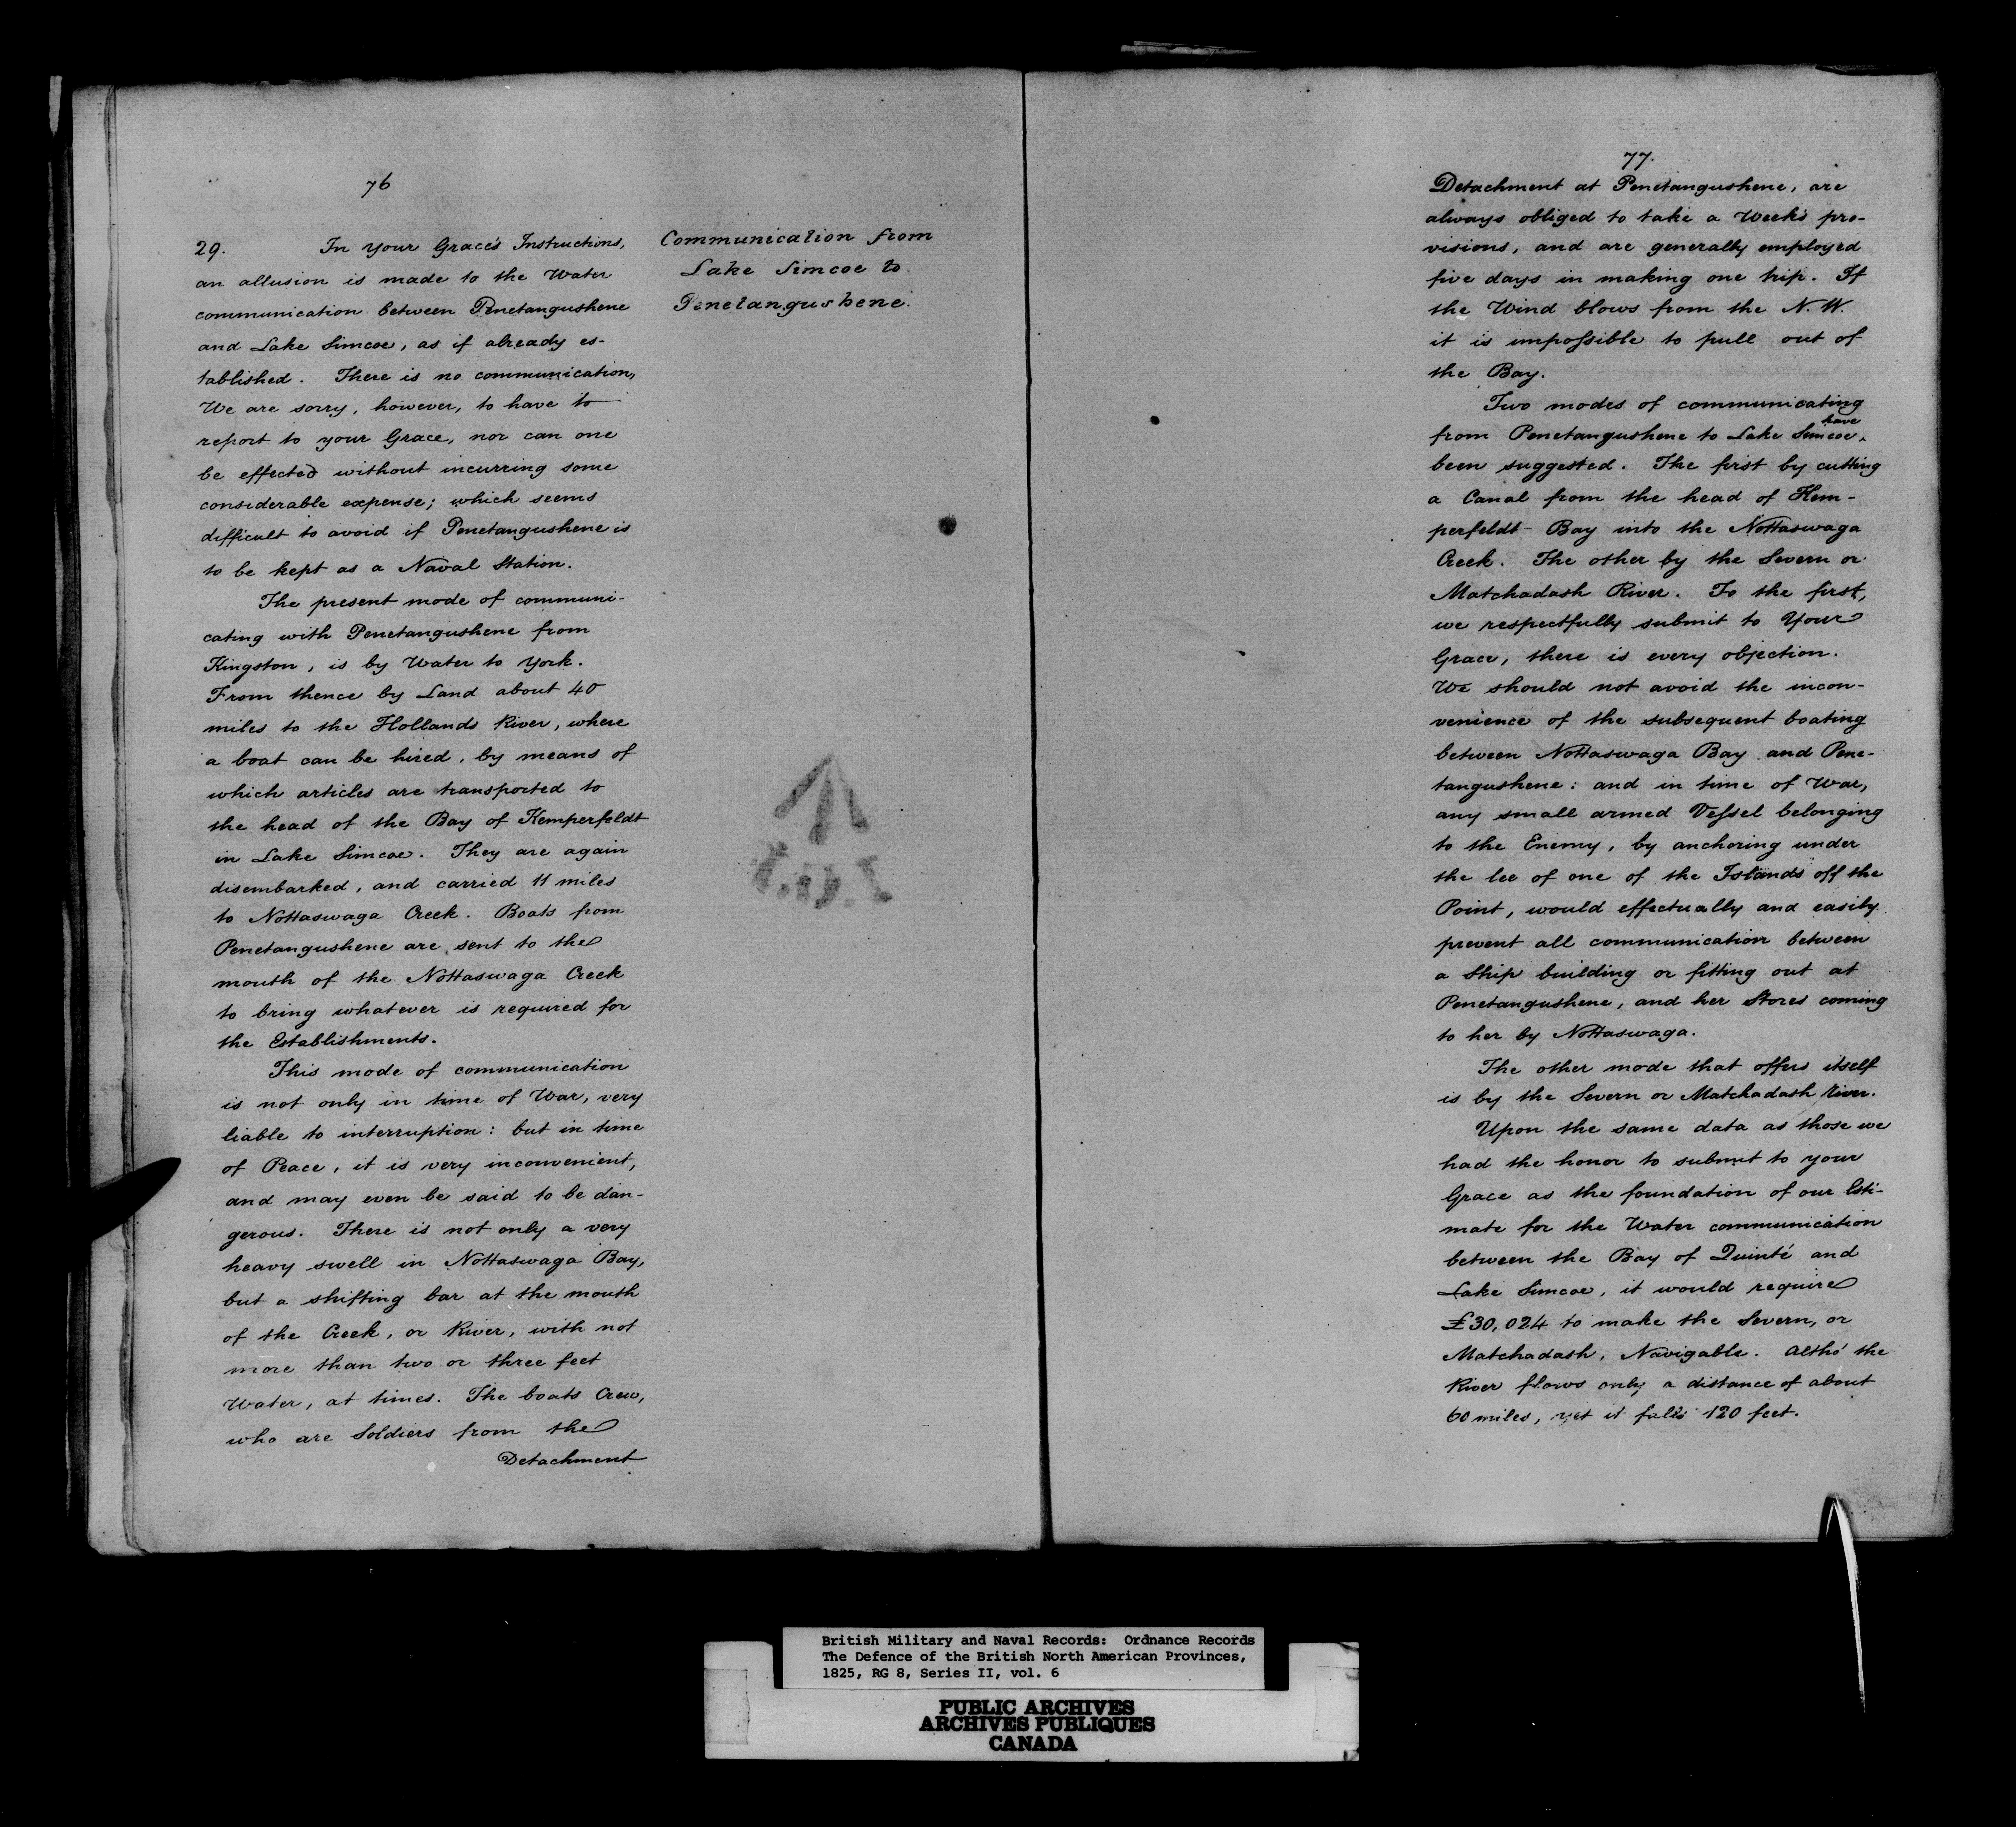 76
29. In your Grace's Instructions,
an allusion is made to the Water
communication between Penetangushene
and Lake Simcoe, as if already es-
tablished. There is no communication,
We are sorry, however, to have to
report to your Grace, nor can one
be effected without incurring some
considerable expense; which seems
difficult to avoid if Penetangushene is
to be kept as a Naval Station.
The present mode of communi-
cating with Penetangushene from
Kingston, is by Water to York.
From thence by Land about 40
miles to the Hollands River, where
a boat can be hired, by means of
which articles are transported to
the head of the Bay of Kemperfeldt
in Lake Simcoe. They are again
disembarked, and carried 11 miles
to Nottaswaga Creek. Boats from
Penetangushene are sent to the
mouth of the Nottaswaga Creek
to bring whatever is required for
the Establishments.
This mode of communication
is not only in time of War, very
liable to interruption: but in time
of Peace, it is very inconvenient,
and may even be said to be dan-
gerous. There is not only a very
heavy swell in Nottaswaga Bay,
but a shifting bar at the mouth
of the Creek, or River, with not
more than two or three feet
Water, at times. The boats Crew,
who are Soldiers from the
Detachment
Communication from
Lake Simcoe to
Penetangushene.
77.
Detachment at Penetangushene, are
always obliged to take a Week's pro-
visions, and are generally employed
five days in making one trip. If
the Wind blows from the N. W.
it is impossible to pull out of
the Bay.
Two modes of communicating
from Penetangushene to Lake Simcoe, have
been suggested. The first by cutting
a Canal from the head of Kem-
perfeldt Bay into the Nottaswaga
Creek. The other by the Severn or
Matchadash River. To the first,
we respectfully submit to Your
Grace, there is every objection.
We should not avoid the incon-
venience of the subsequent boating
between Nottaswaga Bay and Pene-
tangushene: and in time of War,
any small armed Vessel belonging
to the Enemy, by anchoring under
the lee of one of the Islands off the
Point, would effectually and easily
prevent all communication between
a Ship building or fitting out at
Penetangushene, and her Stores coming
to her by Nottaswaga.
The other mode that offers itself
is by the Severn or Matchadash River.
Upon the same data as those we
had the honor to submit to your
Grace as the foundation of our Esti-
mate for the Water communication
between the Bay of Quinté and
Lake Simcoe, it would require
£30,024 to make the Severn, or
Matchadash, Navigable. Altho' the
River flows only a distance of about
60 miles, yet it falls 120 feet.
British Military and Naval Records: Ordnance Records
The Defence of the British North American Provinces,
1825, RG 8, Series II, vol. 6
PUBLIC ARCHIVES
ARCHIVES PUBLIQUES
CANADA